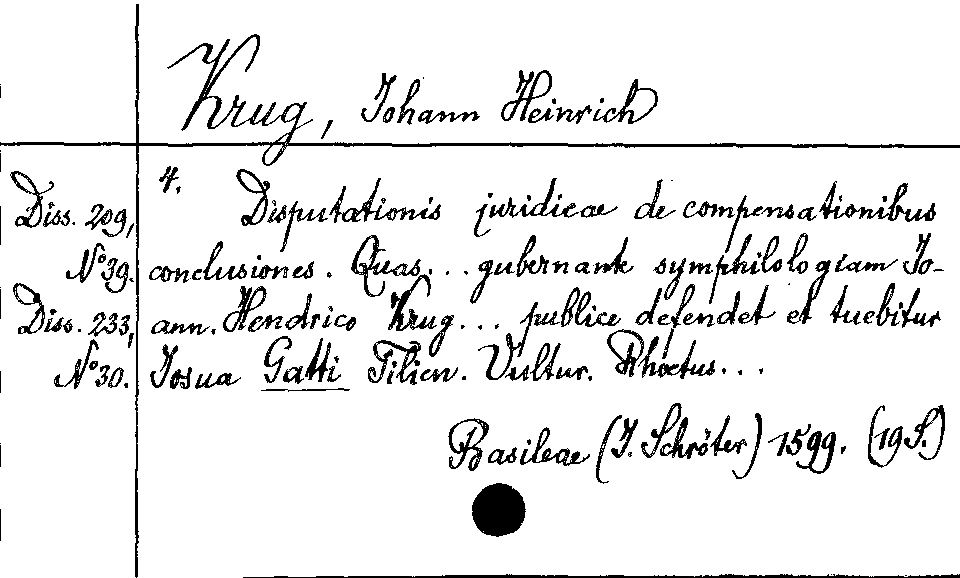 Krug, Johann Heinrich
4. Disputationis juridicae de compensationibus
Diss. 209,
N° 39. conclusiones. Quas... gubernante symphilologiam Jo-
Diss. 233, ann. Hendrico Krug... publice defendet et tuebitur
N° 30. Josua Gatti Filien. Vultur. Rhoetus...
Basileae (J. Schröter) 1599. (19 S.)